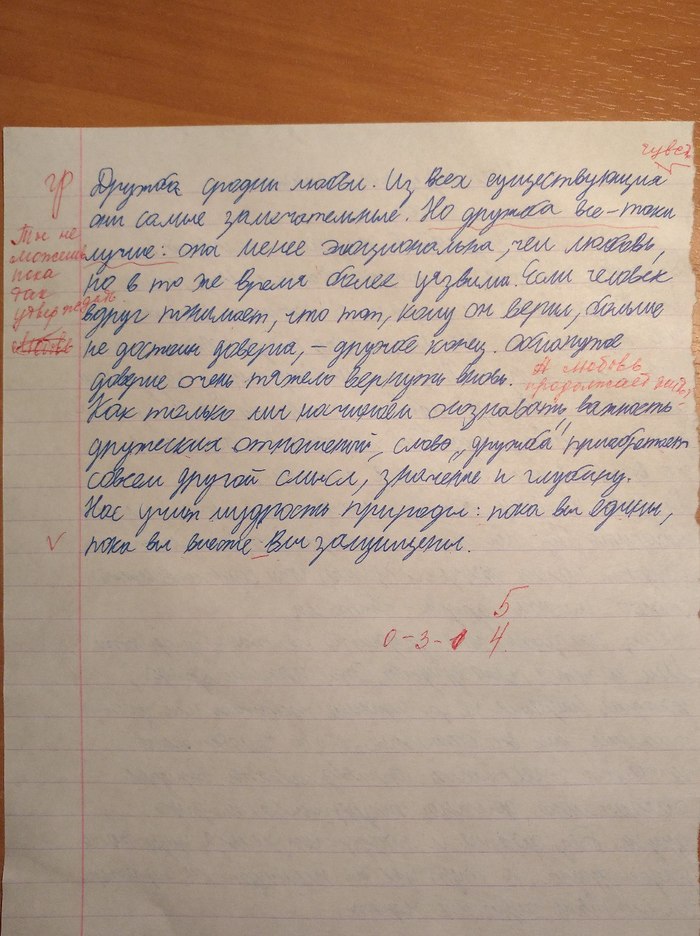 чувств
гр Дружба сродни любви. Из всех существующих
они самые замечательные. Но дружба все-таки
Ты не
можешь
пока
так
утверждать.
лучше: она менее эмоциональна, чем любовь,
но в то же время более уязвима. Если человек
вдруг понимает, что тот, кому он верил, больше
не достоин доверия, – дружбе конец. Обманутое
доверие очень тяжело вернуть вновь.
А любовь
продолжает жить
Как только мы начинаем осознавать важность
дружеских отношений, слово „дружба" приобретает
совсем другой смысл, значение и глубину.
Нас учит мудрость природы: пока вы едины,
пока вы вместе Вы защищены.
5
0-3-1 4